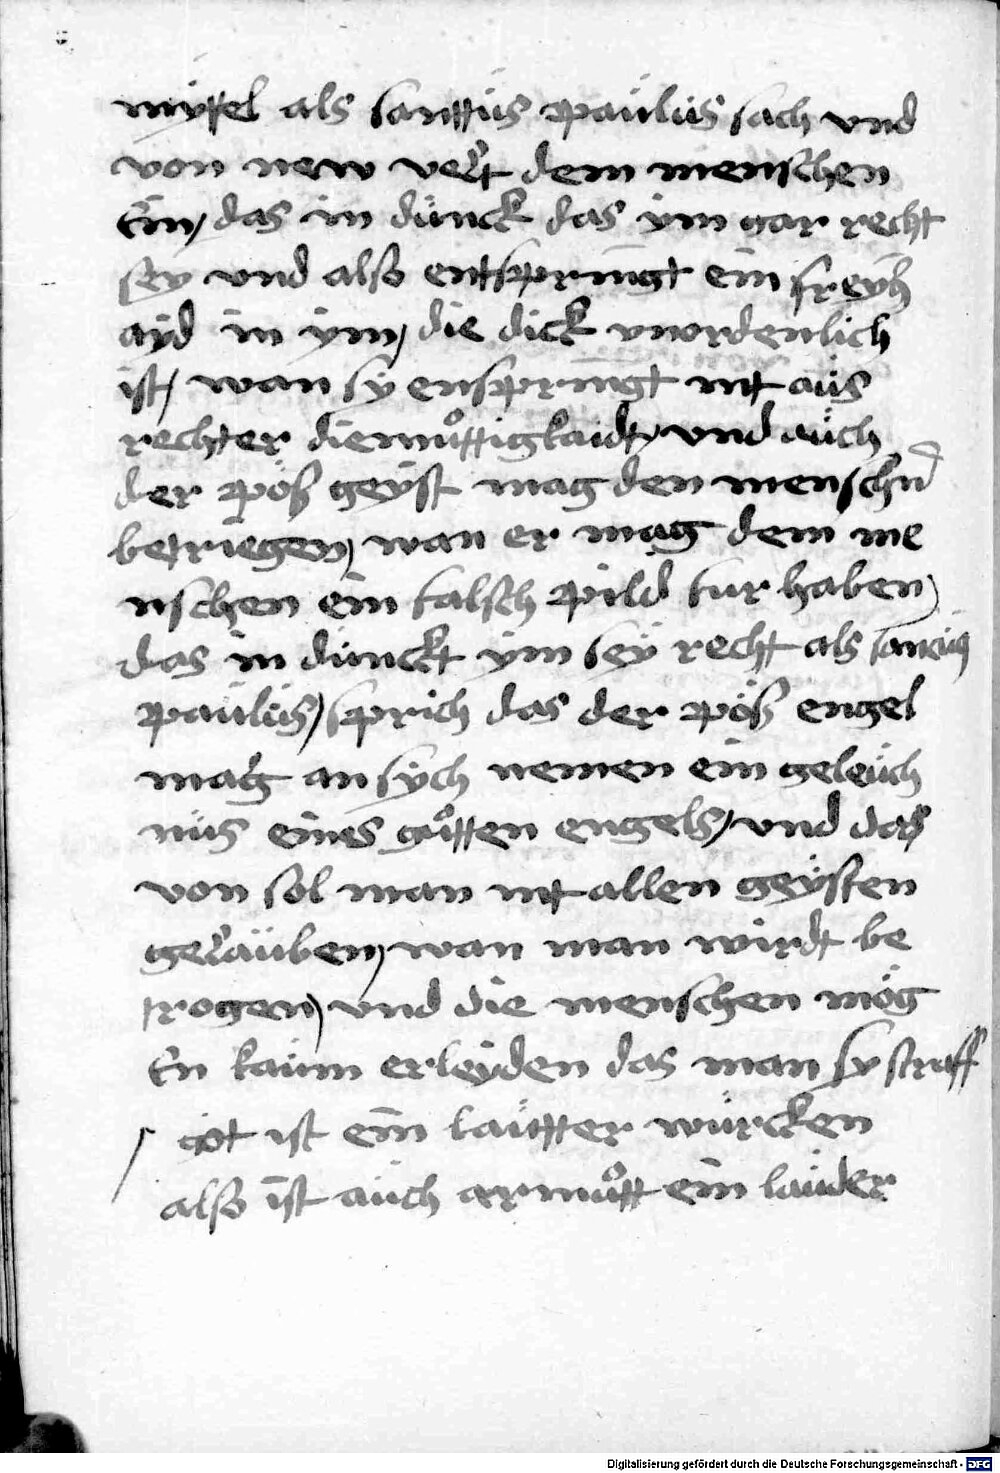 myttel als santtus paulus sach vnd
von new velt dem menschen
Ein / das in dünck das ym gar recht
sey vnd also entspringt ein freyh
ayd in ym / die dick vnordenlich
ist / wan sy enspringt nit aüs
rechter diemůttigkaidt / vnd aüch
der pöß geyst mag den menschn
betriegen / wan er mag dem me
nschen ein falsch pild fur haben /
das in dünckt ym sey recht als sanctus
paulus / sprich das der pöß engel
mag an sych nemen ein geleüch
nüs eines gůtten engels / vnd das
von sol man nit allen geysten
gelaüben / wan man wirdt be
trogen / vnd die menschen mög
En kaum erleyden das man sy straff
/ got ist ein laütter würcken
also ist aüch armůtt ein lauder
Digitalisierung gefördert durch die Deutsche Forschungsgemeinschaft - DFG